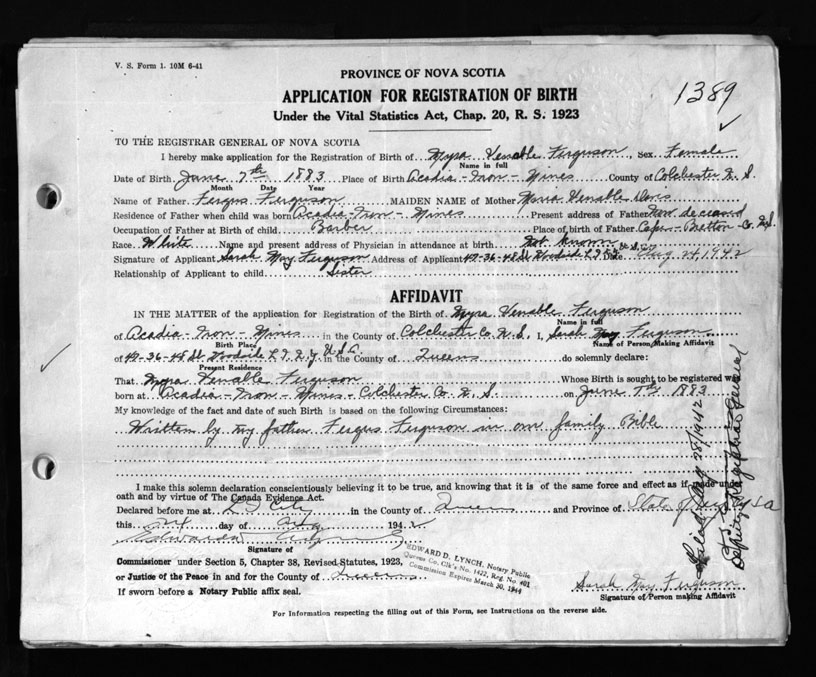 V. S. Form 1. 10M 6-41
PROVINCE OF NOVA SCOTIA
1389
APPLICATION FOR REGISTRATION OF BIRTH
Under the Vital Statistics Act, Chap. 20, R. S. 1923
TO THE REGISTRAR GENERAL OF NOVA SCOTIA
I hereby make application for the Registration of Birth of Myra Venable Ferguson, Sex Female
Name in full
Date of Birth June 7th 1883 Place of Birth Acadia-Iron-Mines County of Colchester N. S.
Month Date Year
Name of Father Fergus Ferguson MAIDEN NAME of Mother Maria Venable
Residence of Father when child was born Acadia-Iron-Mines Present address of Father Now deceased
Occupation of Father at Birth of child Barber Place of birth of Father Cape-Bretton-Co. N.S.
Race White Name and present address of Physician in attendance at birth Not known
Signature of Applicant Sarah May Ferguson Address of Applicant 42-36-48 St Woodside L.I. Date Aug 24, 1942
Relationship of Applicant to child Sister
AFFIDAVIT
IN THE MATTER of the application for Registration of the Birth of Myra Venable Ferguson
Name in full
of Acadia-Iron-Mines in the County of Colchester Co. N. S. I, Sarah May Ferguson
Birth Place Name of Person Making Affidavit
of 42-36-48 St Woodside L. I. N. Y. U.S.A. in the County of Queens do solemnly declare:
Present Residence
That Myra Venable Ferguson Whose Birth is sought to be registered was
born at Acadia-Iron-Mines-Colchester Co N. S. on June 7th 1883
My knowledge of the fact and date of such Birth is based on the following Circumstances:
Written by my father Fergus Ferguson in our family Bible
I make this solemn declaration conscientiously believing it to be true, and knowing that it is of the same force and effect as if made under
oath and by virtue of The Canada Evidence Act.
Declared before me at L I City in the County of Queens and Province of State of USA
this 24 day of Aug 1942
Signature of
Commissioner under Section 5, Chapter 38, Revised Statutes, 1923,
or Justice of the Peace in and for the County of Queens
If sworn before a Notary Public affix seal.
EDWARD D. LYNCH, Notary Public
Queens Co. Clk's No. 1422, Reg. No 401
Commission Expires March 30, 1944
Sarah May Ferguson
Signature of Person making Affidavit
For Information respecting the filling out of this Form, see Instructions on the reverse side.
Filed Aug 28/1942
Deputy Registrar General